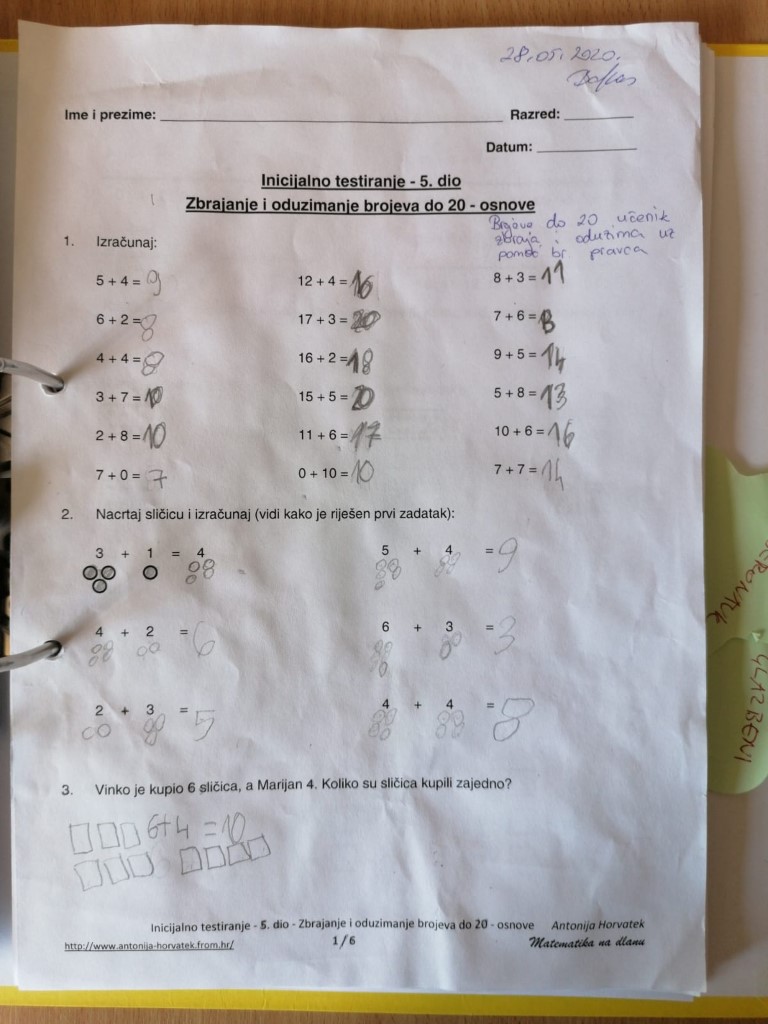 28.05.2020.
Ime i prezime: Razred:
Datum:
Inicijalno testiranje - 5. dio
Zbrajanje i oduzimanje brojeva do 20 - osnove
Brojeve do 20 učenik
zbraja i oduzima uz
pomoć br pravca
1. Izračunaj:
5 + 4 = 9 12 + 4 = 16 8 + 3 = 11
6 + 2 = 8 17 + 3 = 20 7 + 6 =
4 + 4 = 8 16 + 2 = 18 9 + 5 = 14
3 + 7 = 10 15 + 5 = 20 5 + 8 = 13
2 + 8 = 10 11 + 6 = 17 10 + 6 = 16
7 + 0 = 7 0 + 10 = 10 7 + 7 = 14
2. Nacrtaj sličicu i izračunaj (vidi kako je riješen prvi zadatak):
3 + 1 = 4 5 + 4 = 9
4 + 2 = 6 6 + 3 = 3
2 + 3 = 5 4 + 4 = 8
3. Vinko je kupio 6 sličica, a Marijan 4. Koliko su sličica kupili zajedno?
6+4 = 10
Inicijalno testiranje - 5. dio - Zbrajanje i oduzimanje brojeva do 20 - osnove Antonija Horvatek
http://www.antonija-horvatek.from.hr/ 1 / 6 Matematika na dlanu